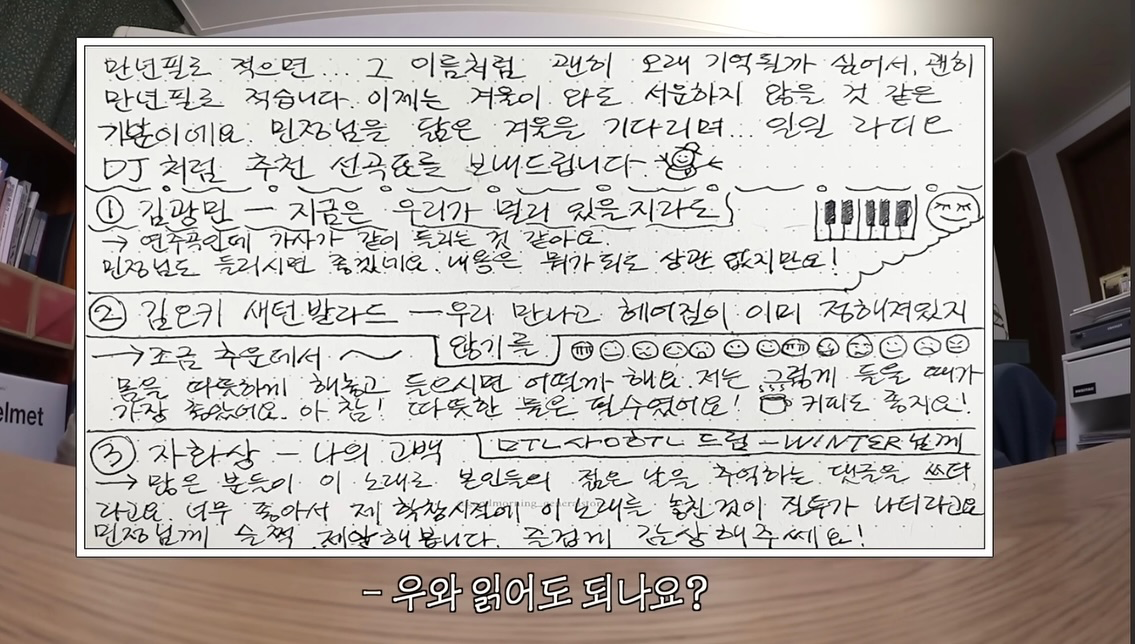 만년필로 적으면... 그 이름처럼 괜히 오래 기억될까 싶어서, 괜히
만년필로 적습니다. 이제는 겨울이 와도 서운하지 않을 것 같은
기분이에요. 민정님을 닮은 겨울을 기다리며... 일일 라디오
DJ처럼 추천 선곡표를 보내드립니다.
① 김광민 - 지금은 우리가 멀리 있을지라도
→ 연주곡인데 가사가 같이 들리는 것 같아요.
민정님도 들리시면 좋겠네요. 내용은 뭐가 되도 상관 없지만요!
② 김오키 새턴발라드 - 우리 만나고 헤어짐이 이미 정해져있지
않기를
→ 조금 추운데서
몸을 따뜻하게 해놓고 들으시면 어떨까 해요. 저는 그렇게 들을 때가
가장 좋았네요. 아 참! 따뜻한 물은 필수였어요! 커피도 좋지요!
③ 자화상 - 나의 고백
드림 - WINTER님께
→ 많은 분들이 이 노래로 본인들의 젊은 날을 추억하는 댓글을 쓰더
라고요. 너무 좋아서 제 학창시절에 이 노래를 놓친 것이 질투가 나더라고요
민정님께 슬쩍 제안해 봅니다. 즐겁게 감상해주세요!
helmet
- 우와 읽어도 되나요?